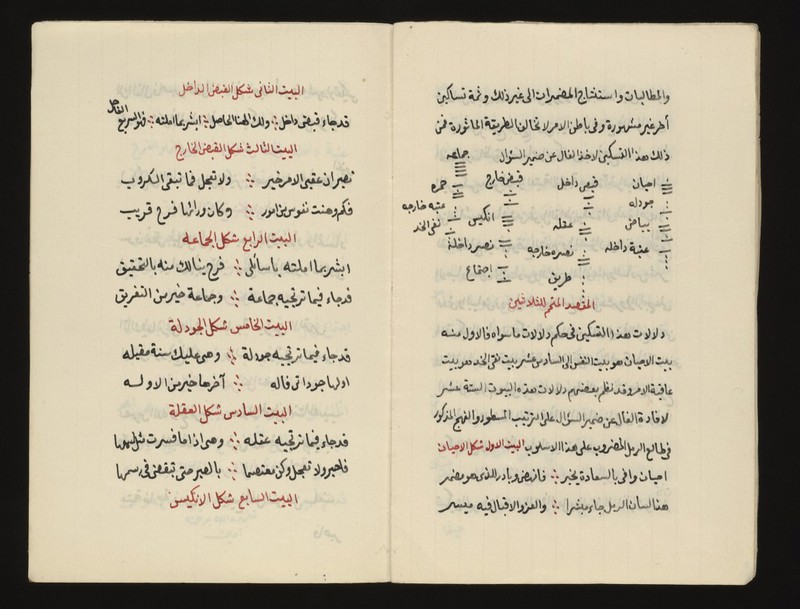 والمطالبات واستنتاج المضمرات الى غير ذلك وثمة تساكين
أخر غير مشهورة وفى باطن الامر لا تخالن الطريقة الماثورة فمن
ذلك هذا التسكين لاخذ الفال عن ضمير السؤال جماعه
احيان قبض داخل قبض خارج حمره
جودله عتبه خارجه
بياض عقله انكيس نقى الخد
عتبة داخله نصره خارجه نصره داخله
طريق اجتماع
المقصد المتمم للثلاثين
دلالات هذا التسكين فى حكم دلالات ما سواه فالاول منه
بيت الاحيان هو بيت النفس الى السادس عشر بيت نقى الخد هو بيت
عاقبة الامر وقد نظم بعضهم دلالات هذه البيوت الستة عشر
لافادة الفال عن ضمير السؤال على الترتيب المسطور والنهج المذكور
فى طالع الرمل المضروب على هذا الاسلوب البيت الاول شكل الاحيان
احيان وافى بالسعادة يخبر فانهض وبادر للذى هو مضمر
هذا لسان الرمل جاء مبشرا والعز والاقبال فيه ميسر
البيت الثانى شكل القبض الداخل
قد جاء قبض داخل ولك الهنا الحاصل ابشر بما املته فهو السريع
البيت الثالث شكل القبض الخارج
تصبر ان عقبى الامر خير ولا تعجل فما تبقى الكروب
فكم وهنت نفوس من امور وكان ورائها فرج قريب
البيت الرابع شكل الجماعه
ابشر بما املته يا سائلى فرح ينالك منه بالتحقيق
قد جاء فيما ترتجيه جماعة وجماعة خير من التفريق
البيت الخامس شكل الجودلة
قد جاء فيما ترتجيه جودلة وهى عليك سنة مقبله
اولها جود اتى فاله آخرها خير من الاوله
البيت السادس شكل العقلة
قد جاء فيما ترتجيه عقله وهى اذا ما فسرت
فاصبر ولا تعجل وكن معتصما بالصبر حتى تنقضى فى
البيت السابع شكل الانكيس